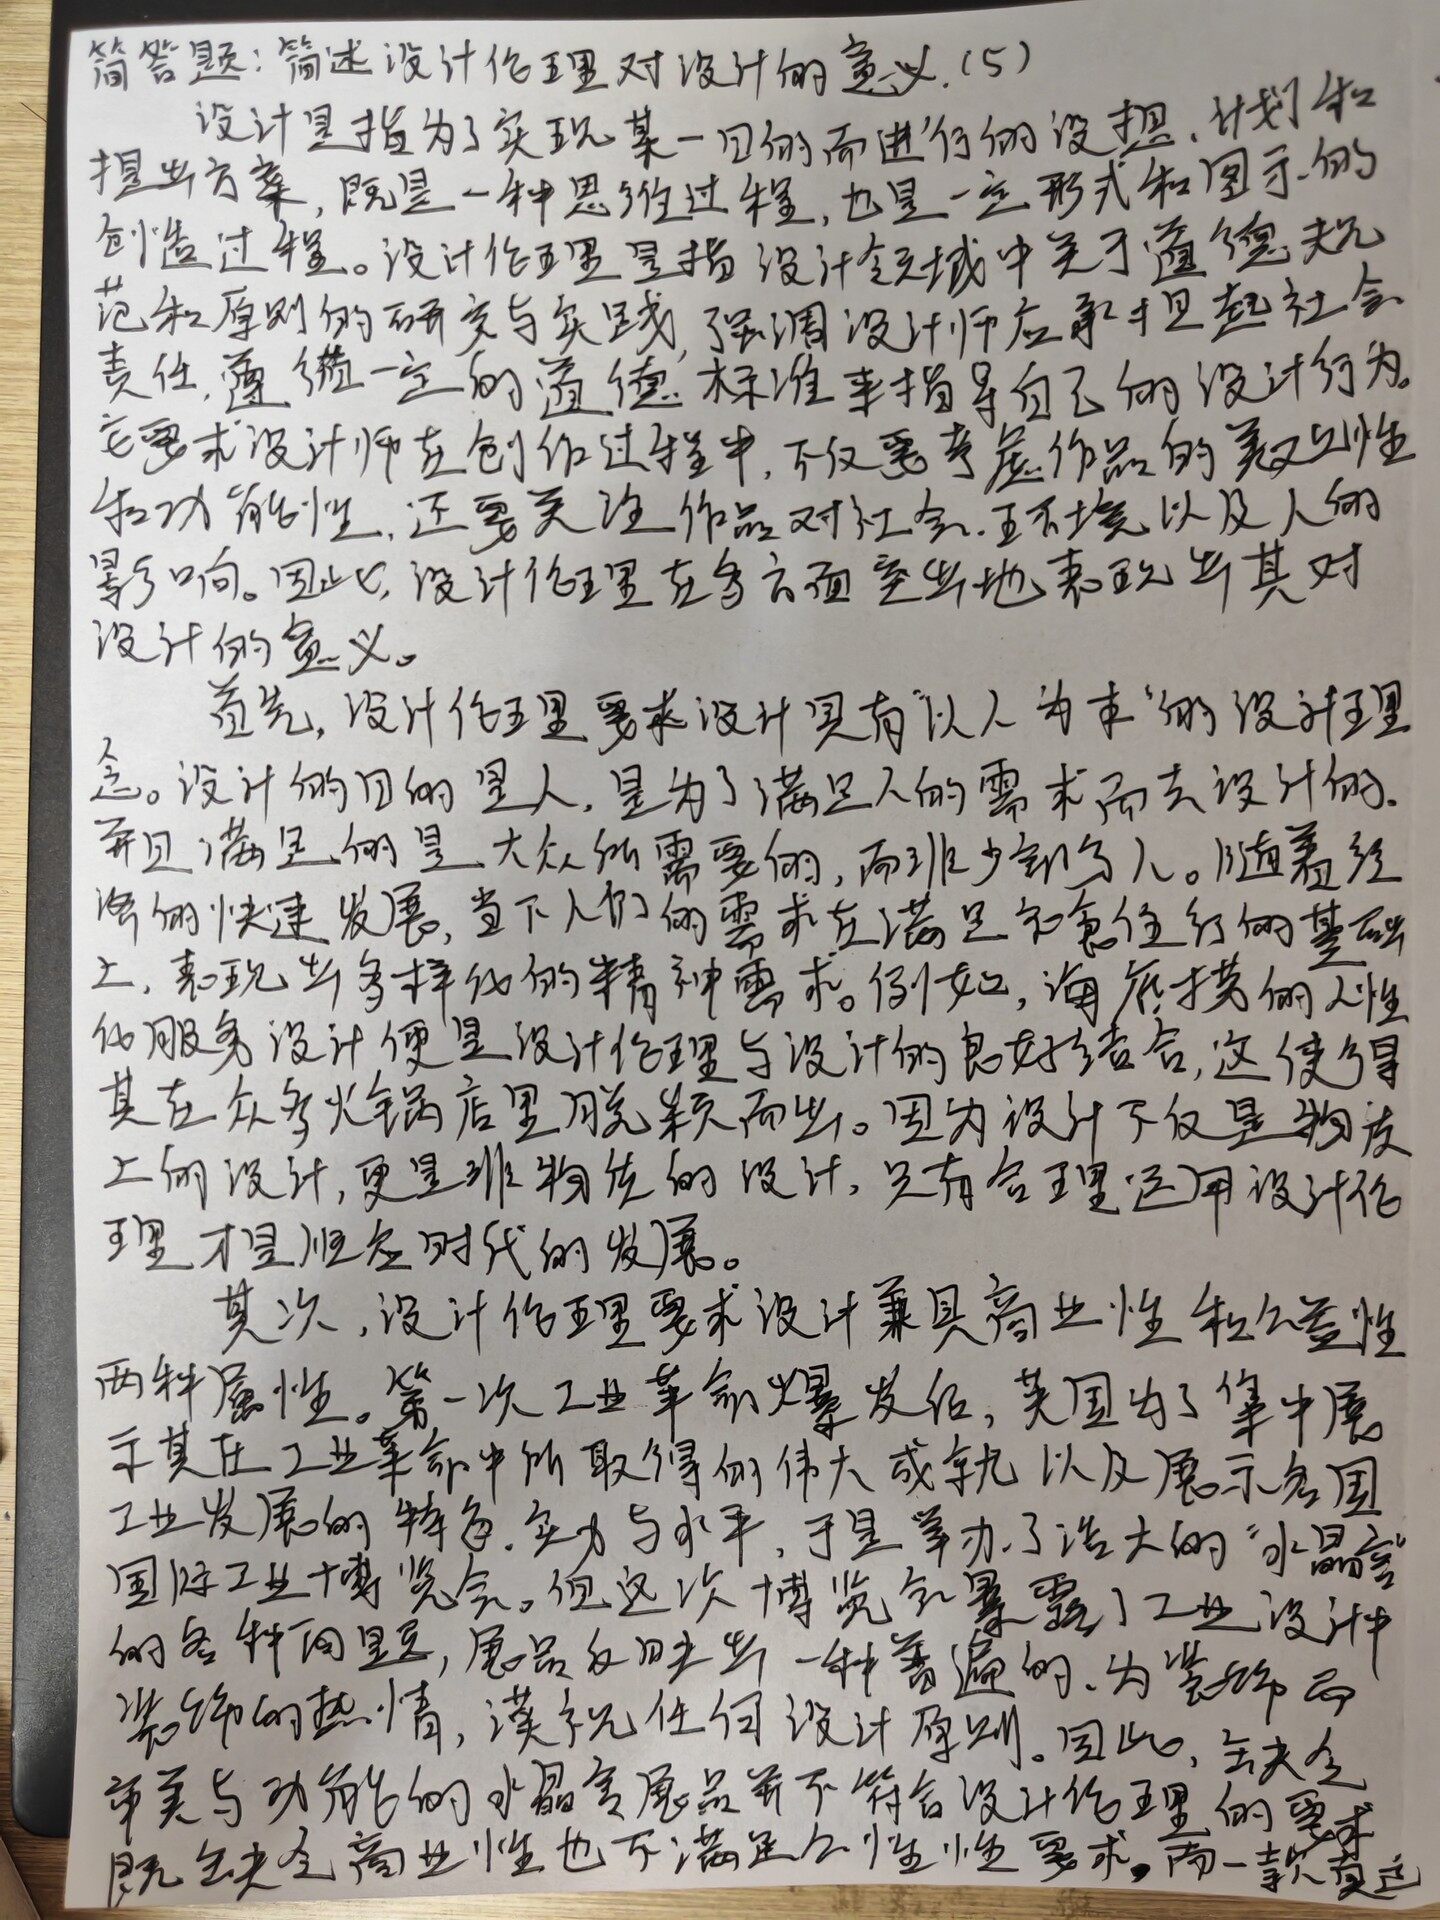 简答题：简述设计伦理对设计的意义.(5)
设计是指为了实现某一目的而进行的设想、计划和
提出方案，既是一种思维过程，也是一定形式和图示的
创造过程。设计伦理是指设计领域中关于道德规
范和原则的研究与实践，强调设计师应承担起社会
责任，遵循一定的道德标准来指导自己的设计行为。
它要求设计师在创作过程中，不仅要考虑作品的美观性
和功能性，还要关注作品对社会、环境以及人的
影响。因此，设计伦理在多方面突出地表现出其对
设计的意义。
首先，设计伦理要求设计具有“以人为本”的设计理
念。设计的目的是人，是为了满足人的需求而去设计的，
并且满足的是大众所需要的，而非少部分人。随着经
济的快速发展，当下人们的需求在满足衣食住行的基础
上，表现出多样化的精神需求。例如，海底捞的人性
化服务设计便是设计伦理与设计的良好结合，这使得
其在众多火锅店里脱颖而出。因为设计不仅是物质
上的设计，更是非物质的设计，只有合理运用设计伦
理才是顺应时代的发展。
其次，设计伦理要求设计兼具商业性和公益性
两种属性。第一次工业革命爆发后，英国为了集中展
示其在工业革命中所取得的伟大成就以及展示各国
工业发展的特色、实力与水平，于是举办了浩大的“水晶宫”
国际工业博览会。但这次博览会暴露了工业设计中
的各种问题，展品反映出一种普遍的、为装饰而
装饰的热情，漠视任何设计原则。因此，缺失
审美与功能的水晶宫展品并不符合设计伦理的要求
既缺失商业性也不满足公性性要求。而一款真正